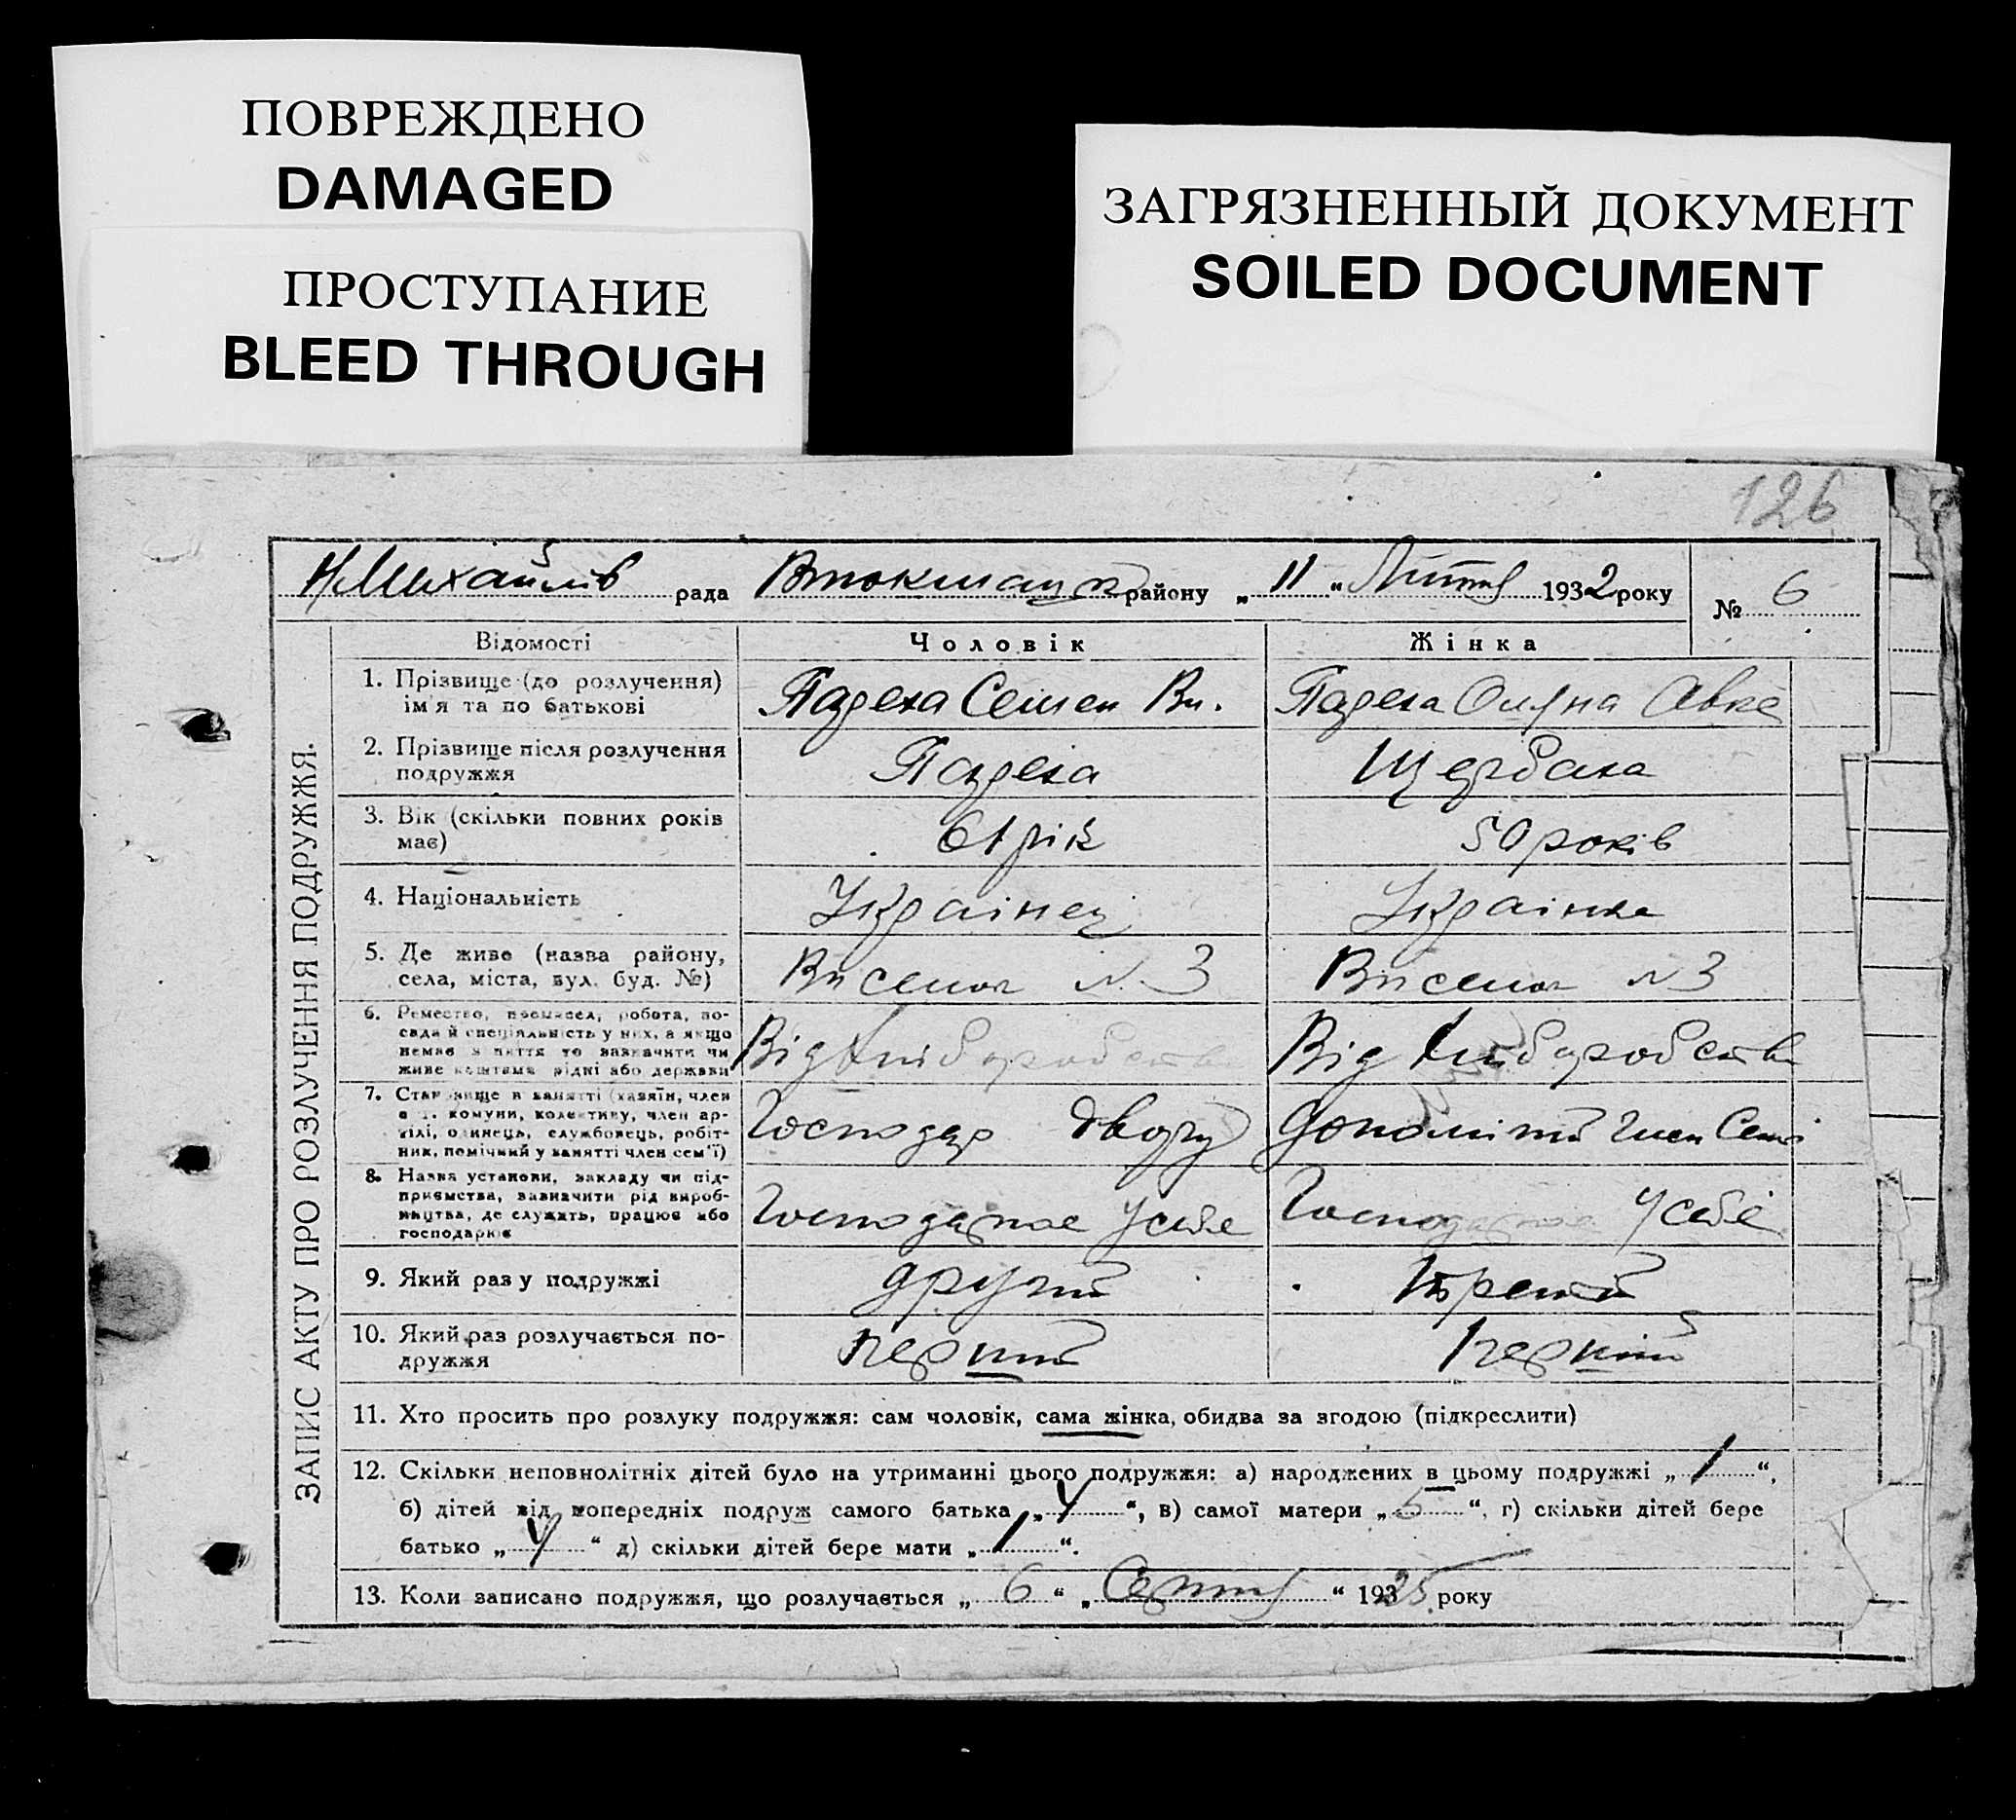 ПОВРЕЖДЕНО
DAMAGED
ПРОСТУПАНИЕ
BLEED THROUGH
ЗАГРЯЗНЕННЫЙ ДОКУМЕНТ
SOILED DOCUMENT
126
ЗАПИС АКТУ ПРО РОЗЛУЧЕННЯ ПОДРУЖЖЯ.
Н Михайлів рада Втокмацьк району „ 11 “ 1932 року № 6
Відомості Чоловік Жінка
1. Прізвище (до розлучення) ім'я та по батькові
Семен Вл.
2. Прізвище після розлучення подружжя
Щербака
3. Вік (скільки повних років має)
61 рік 50 років
4. Національність
Українец Українка
5. Де живе (назва району, села, міста, вул. буд. №)
Виселок № 3 Виселок № 3
6. Ремество, промисел, робота, посада й спеціяльність у них, а якщо немає з життя то зазначити чи живе коштами рідні або держави
Від хліборобства Від хліборобства
7. Становище в занятті (хазяїн, член с.-г. комуни, колективу, член артілі, одинець, службовець, робітник, помічний у занятті член сем'ї)
Господар двору член Семї
8. Назва установи, закладу чи підприємства, зазначити рід виробництва, де служить, працює або господарює
Господарює у себе у себе
9. Який раз у подружжі
другий третій
10. Який раз розлучається подружжя
перший перший
11. Хто просить про розлуку подружжя: сам чоловік, сама жінка, обидва за згодою (підкреслити)
12. Скільки неповнолітніх дітей було на утриманні цього подружжя: а) народжених в цьому подружжі „ 1 “,
б) дітей від попередніх подруж самого батька „ 4 “, в) самої матери „ 5 “, г) скільки дітей бере
батько „ 4 “ д) скільки дітей бере мати „ 1 “.
13. Коли записано подружжя, що розлучається „ 6 “ „ “ 19325 року